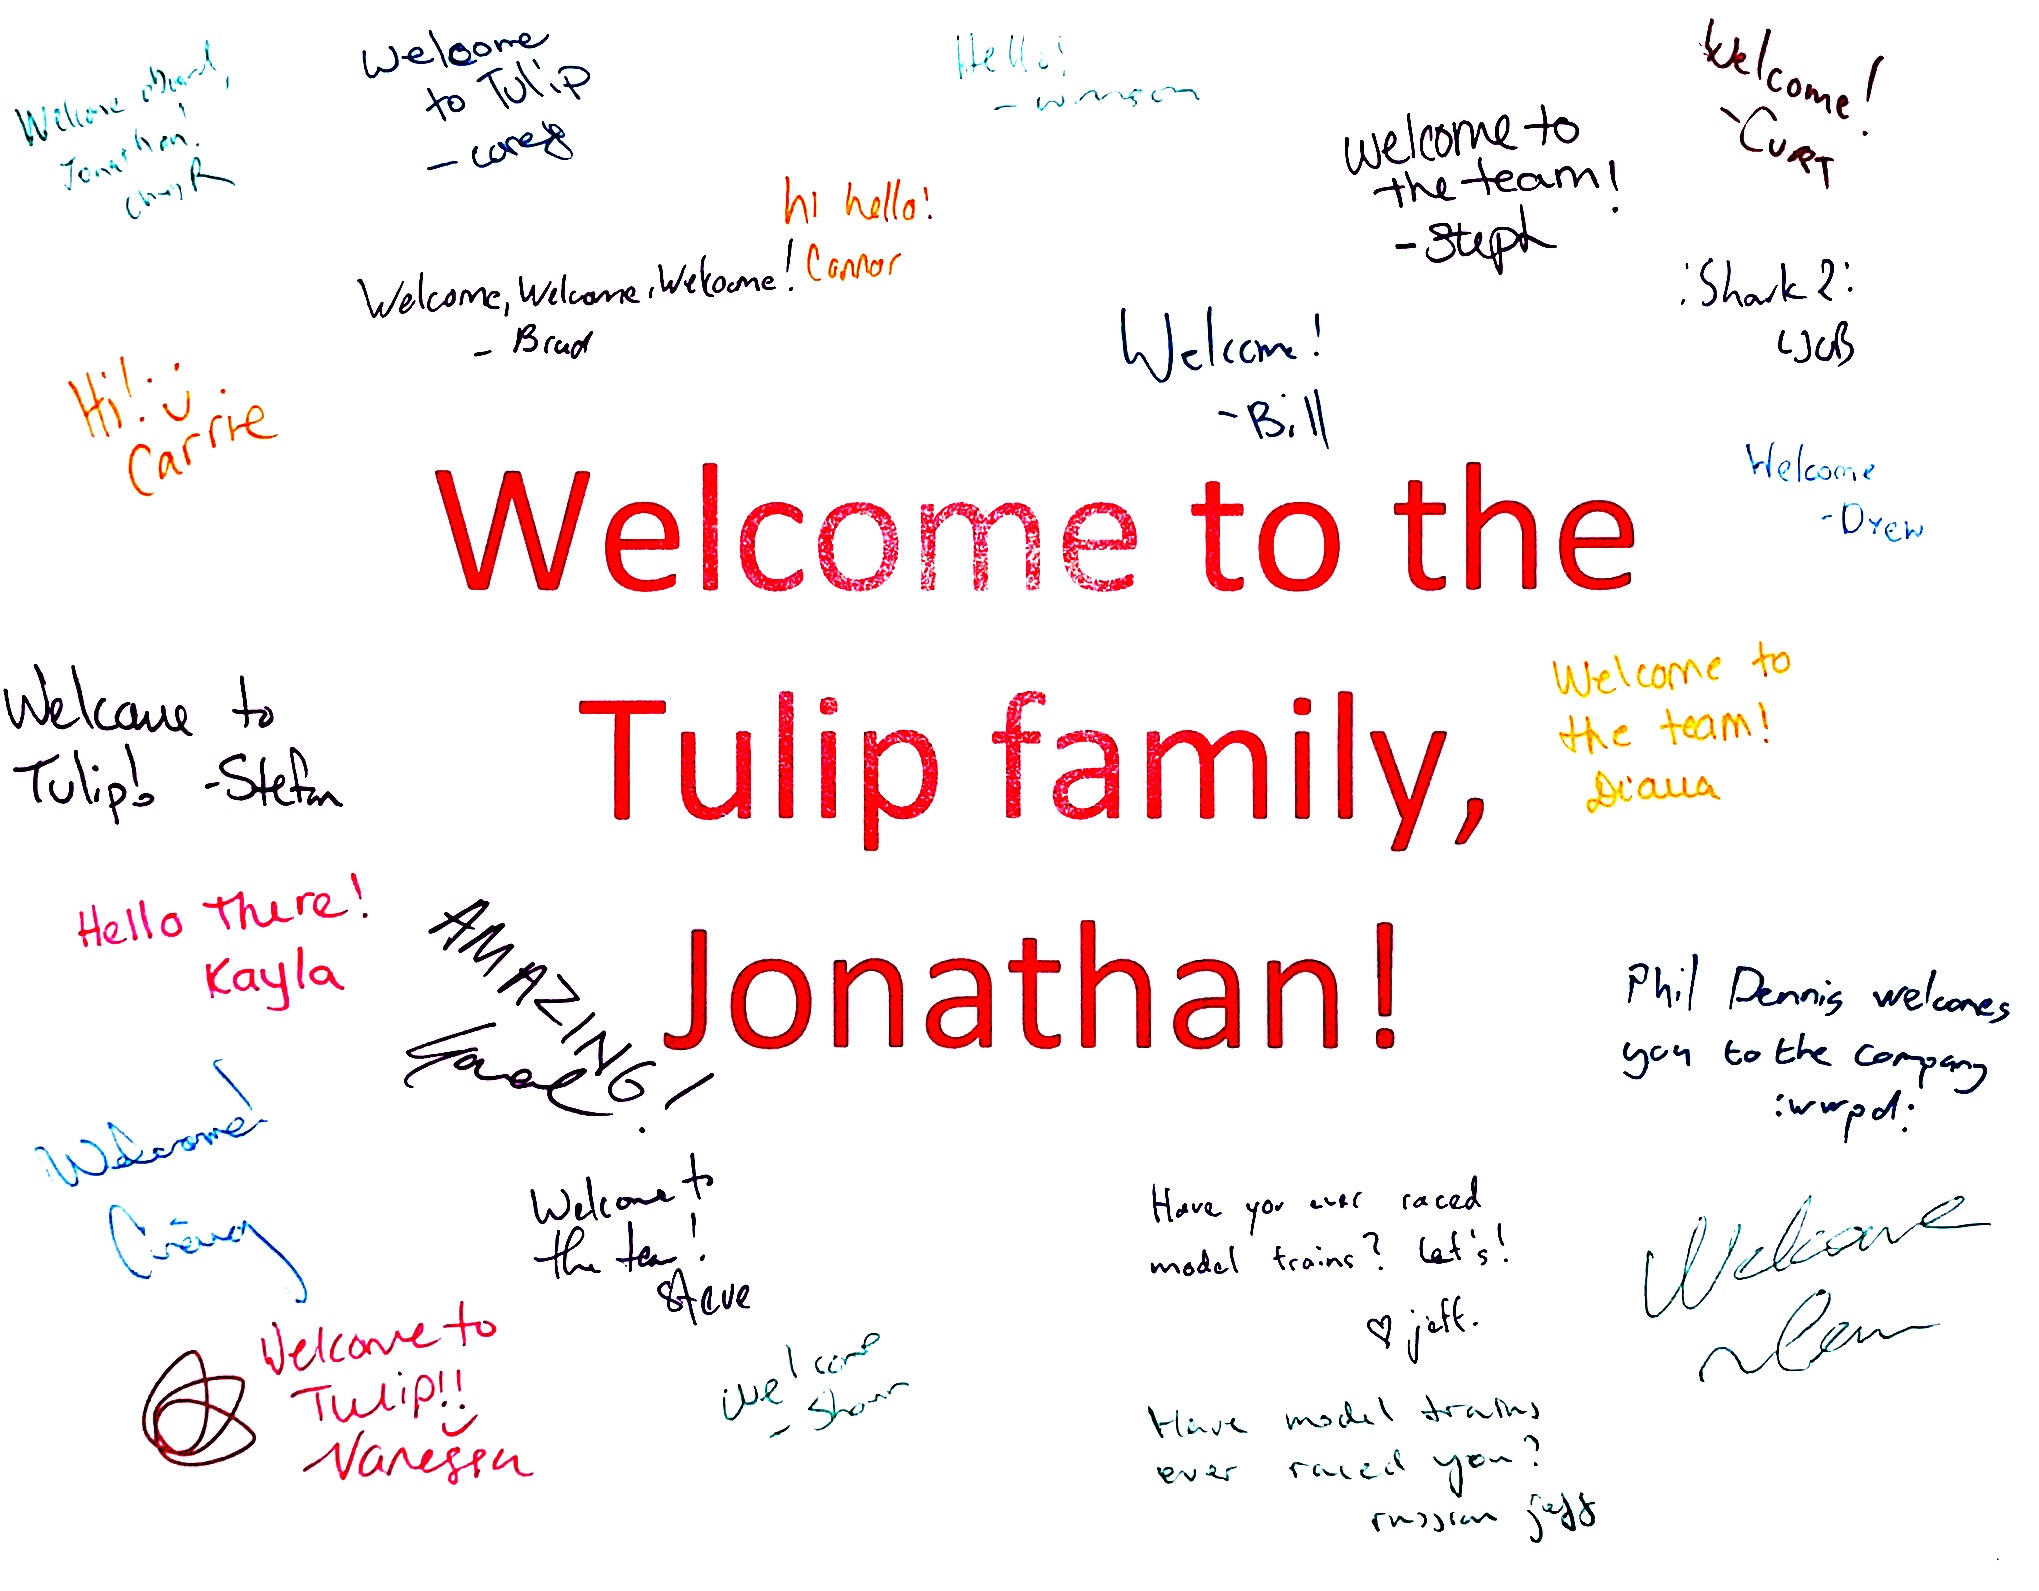 Welcome aboard,
Jonathan!
Chris R
Welcome
to Tulip
- Corey
Hello!
- Winson
Welcome!
- CURT
Welcome to
the team!
- Steph
hi hello!
Connor
Welcome, Welcome, Welcome!
- Brad
:Shark 2:
Welcome!
- Bill
Hi! :)
Carrie
Welcome
- Drew
Welcome to the
Tulip family,
Jonathan!
Welcome to
Tulip! - Stefan
Welcome to
the team!
Diana
Hello There!
Kayla
AMAZING!
Phil Dennis welcomes
you to the company
:wwpd:
Welcome!
Welcome to
the team!
Steve
Have you ever raced
model trains? Let's!
♡ jeff.
Welcome
Welcome to
Tulip!!
Vanessa
Welcome
- Shawn
Have model trains
ever raced you?
russian jeff